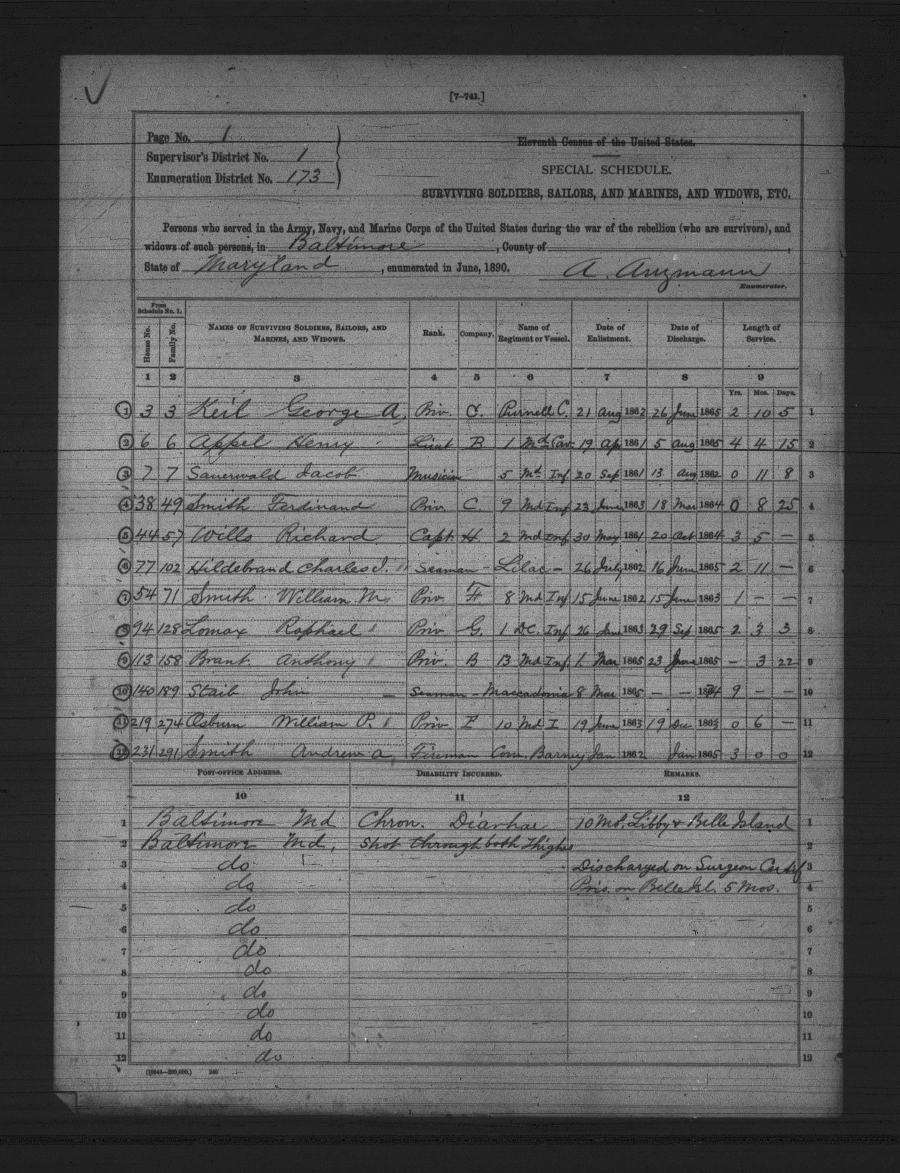 [7-741.]
Page No. 1
Supervisor's District No. 1
Enumeration District No. 173
Eleventh Census of the United States.
SPECIAL SCHEDULE.
SURVIVING SOLDIERS, SAILORS, AND MARINES, AND WIDOWS, ETC.
Persons who served in the Army, Navy, and Marine Corps of the United States during the war of the rebellion (who are survivors), and
widows of such persons, in Baltimore, County of
State of Maryland, enumerated in June, 1890. A.
Enumerator.
From Schedule No. 1.
House No. Family No. NAMES OF SURVIVING SOLDIERS, SAILORS, AND MARINES, AND WIDOWS. Rank. Company. Name of Regiment or Vessel. Date of Enlistment. Date of Discharge. Length of Service.
1 2 3 4 5 6 7 8 9
Yrs. Mos. Days.
1 3 3 Keil George A, Priv. C. Purnell C. 21 Aug 1862 26 June 1865 2 10 5 1
2 6 6 Appel Henry Lieut B 1 Md Cav 19 Ap 1861 5 Aug 1865 4 4 15 2
3 7 7 Sauerwald Jacob Musician 5 Md Inf 20 Sep 1861 13 Aug 1862 0 11 8 3
4 38 49 Smith Ferdinand Priv C 9 Md Inf 23 June 1863 18 Mar 1864 0 8 25 4
5 44 57 Wills Richard Capt H. 2 Md Inf 30 May 1861 20 Oct 1864 3 5 — 5
6 77 102 Hildebrand Charles J. Seaman - Lilac - 26 July 1862 16 June 1865 2 11 — 6
7 54 71 Smith William M, Priv F 8 Md Inf 15 June 1862 15 June 1863 1 — — 7
8 94 128 Lomax Raphael Priv G. 1 DC. Inf 26 Jun 1863 29 Sep 1865 2 3 3 8
9 113 158 Brant Anthony Priv. B 13 Md Inf 1 Mar 1865 23 June 1865 — 3 22 9
10 140 189 Staib John — Seaman - Maccadonia 8 Mar 1865 — — 9 — — 10
11 219 274 Osburn William P. Priv E 10 Md I 19 June 1863 19 Dec 1863 0 6 — 11
12 231 291 Smith Andrew A, Fireman Com. Barney Jan 1862 Jan 1865 3 0 0 12
POST-OFFICE ADDRESS. DISABILITY INCURRED. REMARKS.
10 11 12
1 Baltimore Md Chron. Diarhae 10 Mos. Libby & Belle Island 1
2 Baltimore Md, Shot through both Thighs 2
3 do Discharged on Surgeon Certif 3
4 do Pris. on Belle Isl. 5 Mos. 4
5 do 5
6 do 6
7 do 7
8 do 8
9 do 9
10 do 10
11 do 11
12 do 12